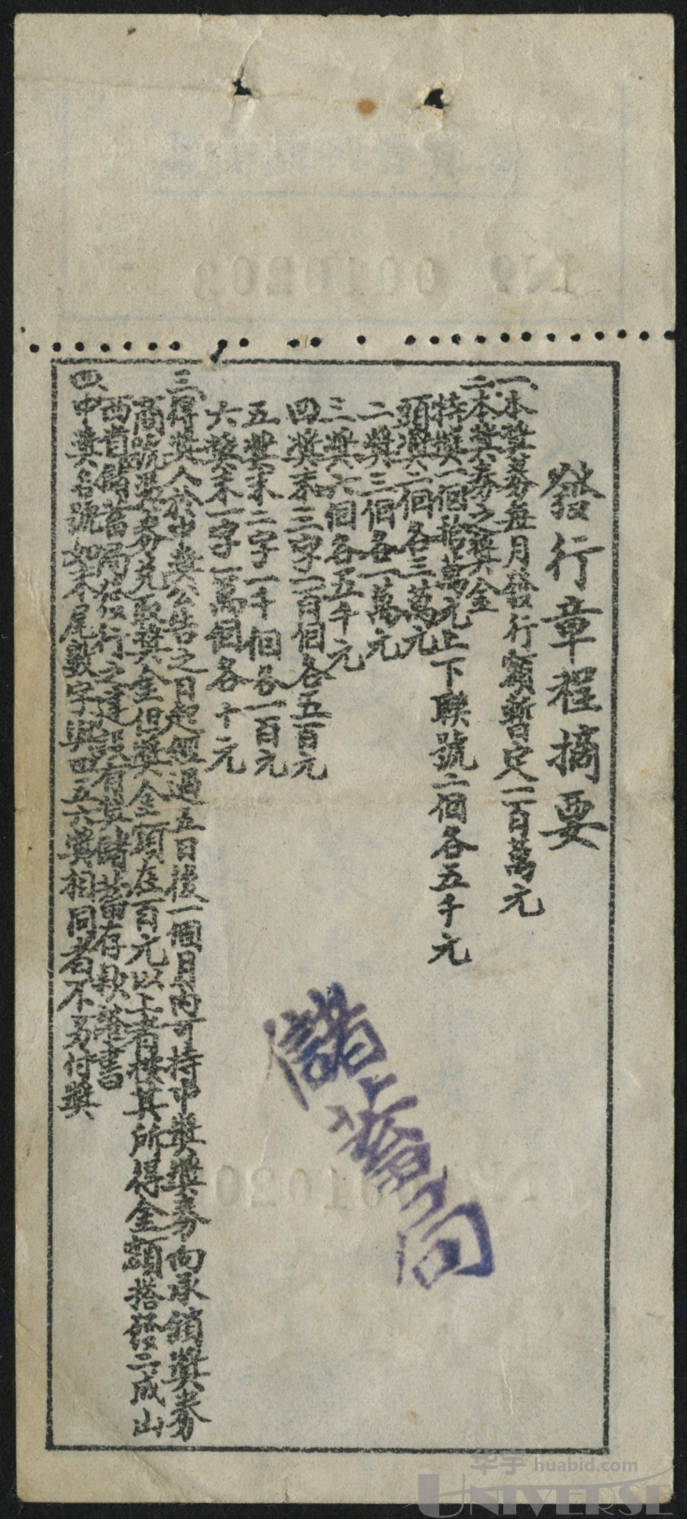 發行章程摘要
一、本獎券每月發行額暫定一百萬元
二、本獎券之獎金
特獎一個拾萬元上下聯號二個各五千元
頭獎二個各三萬元
二獎三個各一萬元
三獎六個各五千元
四獎末三字一百個各五百元
五獎末二字一千個各一百元
六獎末一字一萬個各十元
三、得獎人於中獎公告之日起經過五日後一個月內可持中獎獎券向承銷獎券
商號獎券兌取獎金但獎金額在百元以上者按其所得金額搭發二成山
西省儲蓄局發行之建設有獎儲蓄存款證書
四、中獎名號如末尾數字與四五六獎相同者不另付獎
儲蓄局
Nº 0010203
華宇 huabid.com
UNIVERSE